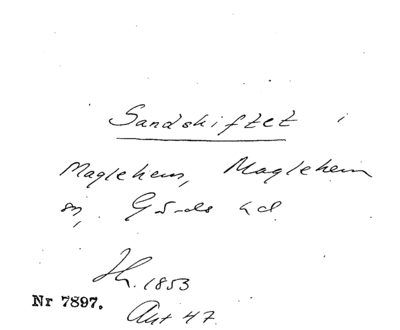 Sandskiftet i
Maglehem, Maglehem
sn, Gärds hd
Th. 1853
Nr 7897.
Akt 47